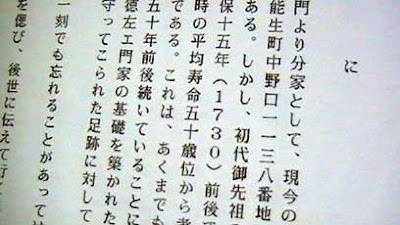 に
門より分家として、現今の
能生町中野口一一三八番地
ある。しかし、初代御先祖の
保十五年（1730）前後で
時の平均寿命五十歳位から考
である。これは、あくまでも
五十年前後続いていることに
徳左エ門家の基礎を築かれた
守ってこられた足跡に対して
一刻でも忘れることがあっては
を偲び、後世に伝えて行